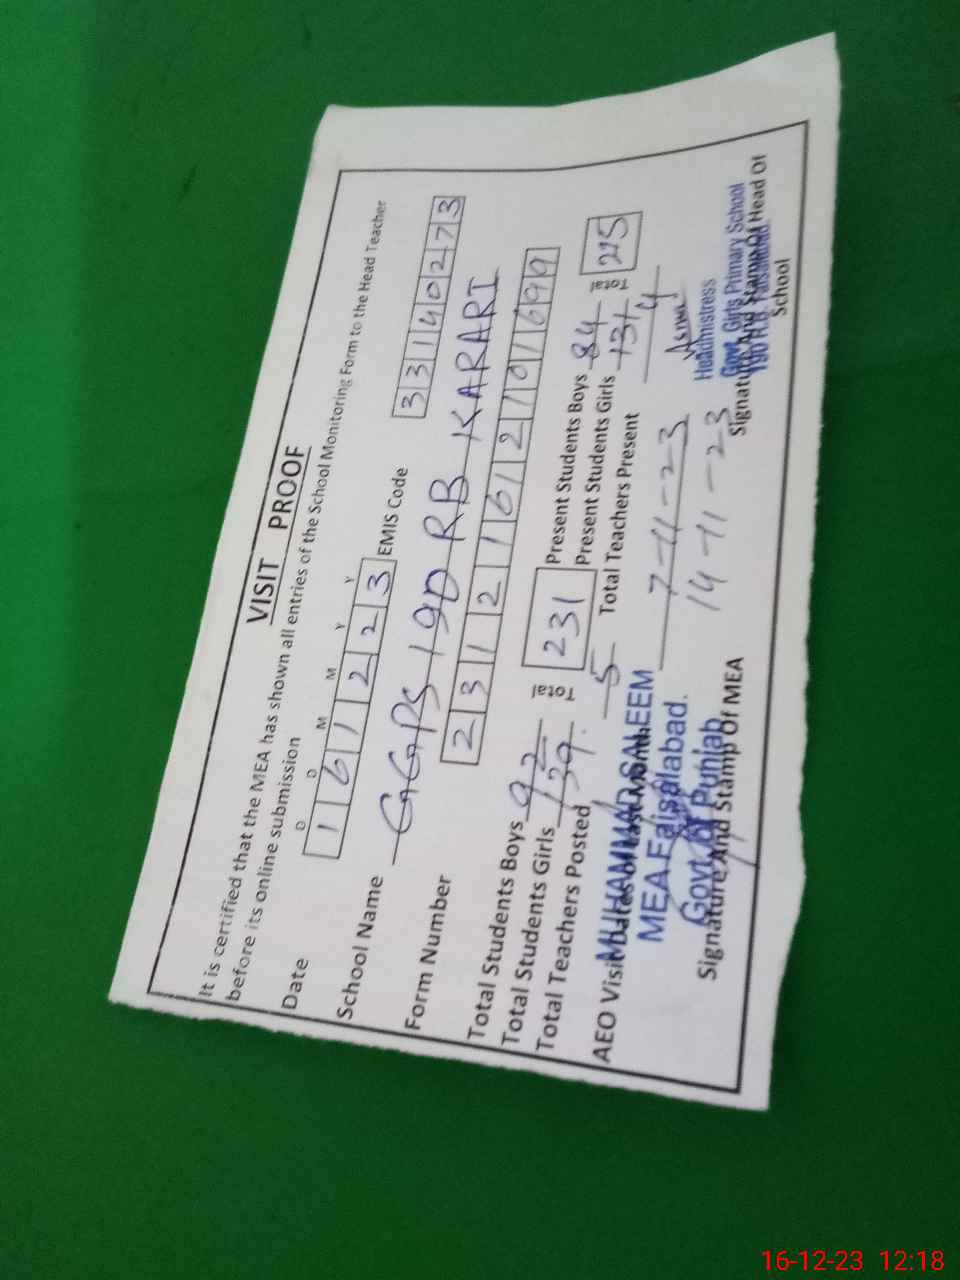 VISIT PROOF
It is certified that the MEA has shown all entries of the School Monitoring Form to the Head Teacher
before its online submission
D D M M Y Y
Date 1 6 1 2 2 3 EMIS Code 3 3 1 4 0 2 7 3
School Name GGPS 190 RB KARARI
Form Number 2 3 1 2 1 6 1 2 1 0 1 6 9 9
Total Students Boys 92 Total 231 Present Students Boys 84 Total 215
Total Students Girls 139 Present Students Girls 131
Total Teachers Posted 5 Total Teachers Present 4
AEO Visit Dates of Last Month 7-11-23
14-11-23
MUHAMMAD SALEEM
MEA Faisalabad.
Govt. of Punjab
Signature And Stamp Of MEA
Asma
Headmistress
Govt. Girls Primary School
190 R.B. Faisalabad
Signature And Stamp Of Head Of
School
16-12-23 12:18